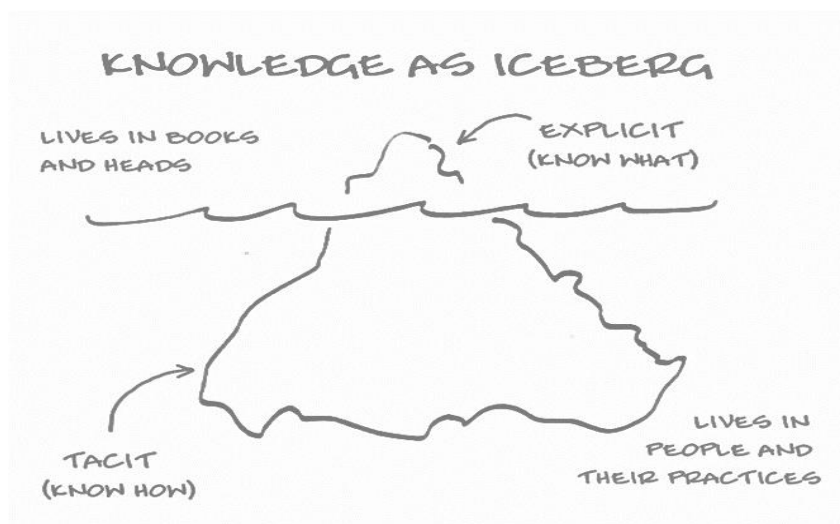 KNOWLEDGE AS ICEBERG
LIVES IN BOOKS
AND HEADS
EXPLICIT
(KNOW WHAT)
TACIT
(KNOW HOW)
LIVES IN
PEOPLE AND
THEIR PRACTICES